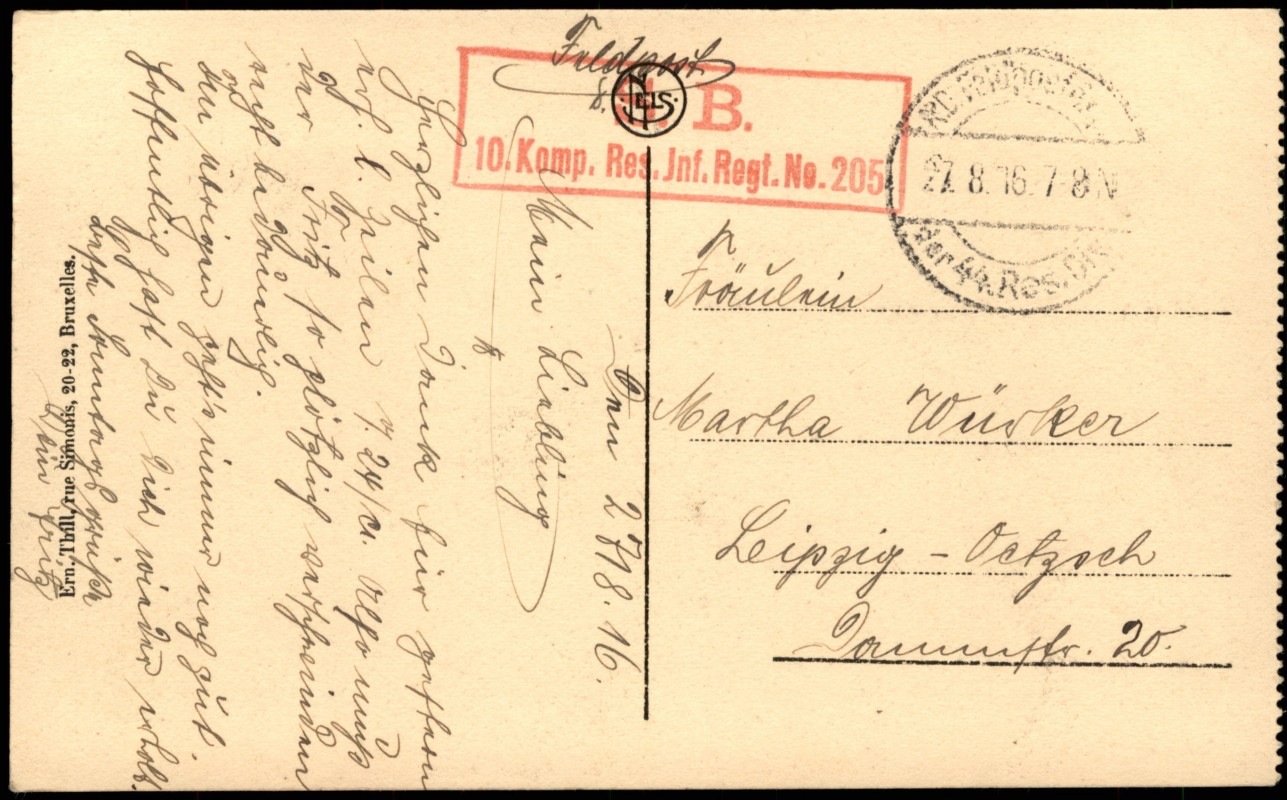 Feldpost.
S. B.
10. Komp. Res. Jnf. Regt. No. 205
NELS
K.D. Feldpostex.
27. 8. 16. 7-8 N
der 44. Res. Div.
Fräulein
Martha Würker
Leipzig – Oetzsch
Dammstr. 20.
Den 27/8. 16.
Mein Liebling
Herzlichen Dank für gestern
erh. l. Zeilen v. 24/8. Also muß
der Fritz so plötzlich verschwinden
recht bedauerlich.
Im übrigen geht's immer noch gut.
Hoffentlich hast Du Dich wieder erholt.
beste Sonntagsgrüße
Dein Fritz
Ern. Thill, rue Simonis, 20-22, Bruxelles.